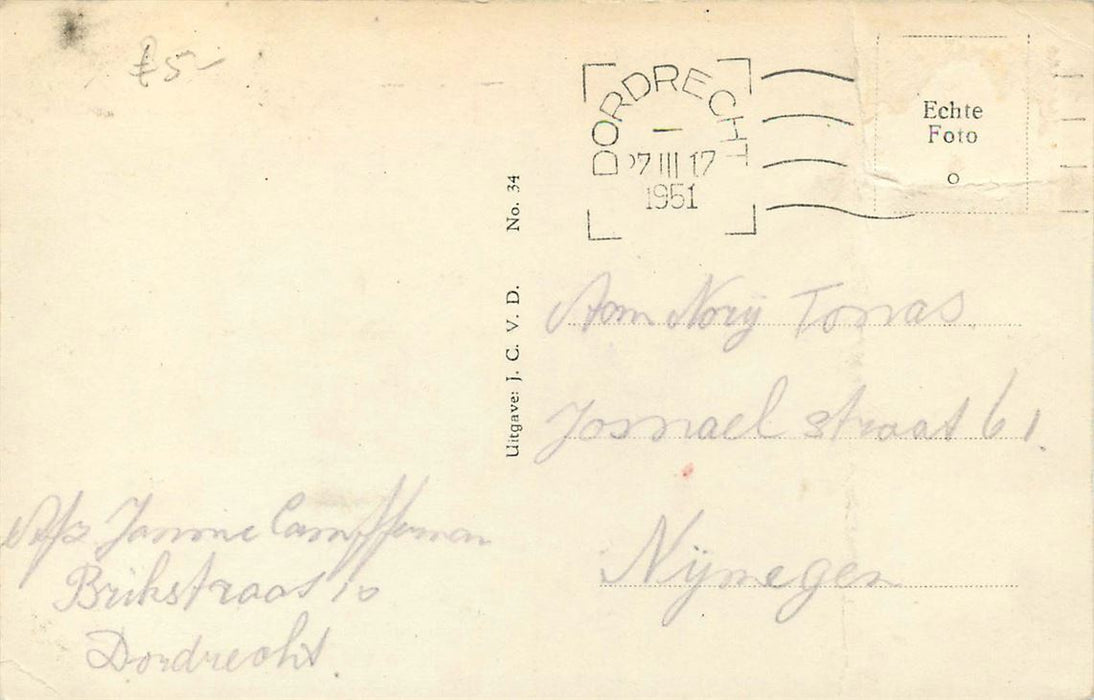 £5-
DORDRECHT
27 III 17
1951
Echte
Foto
Uitgave: J. C. V. D. No. 34
Aan Norij Tonnas
straat 61.
Nijmegen
Afz Janne
Brikstraat 10
Dordrecht